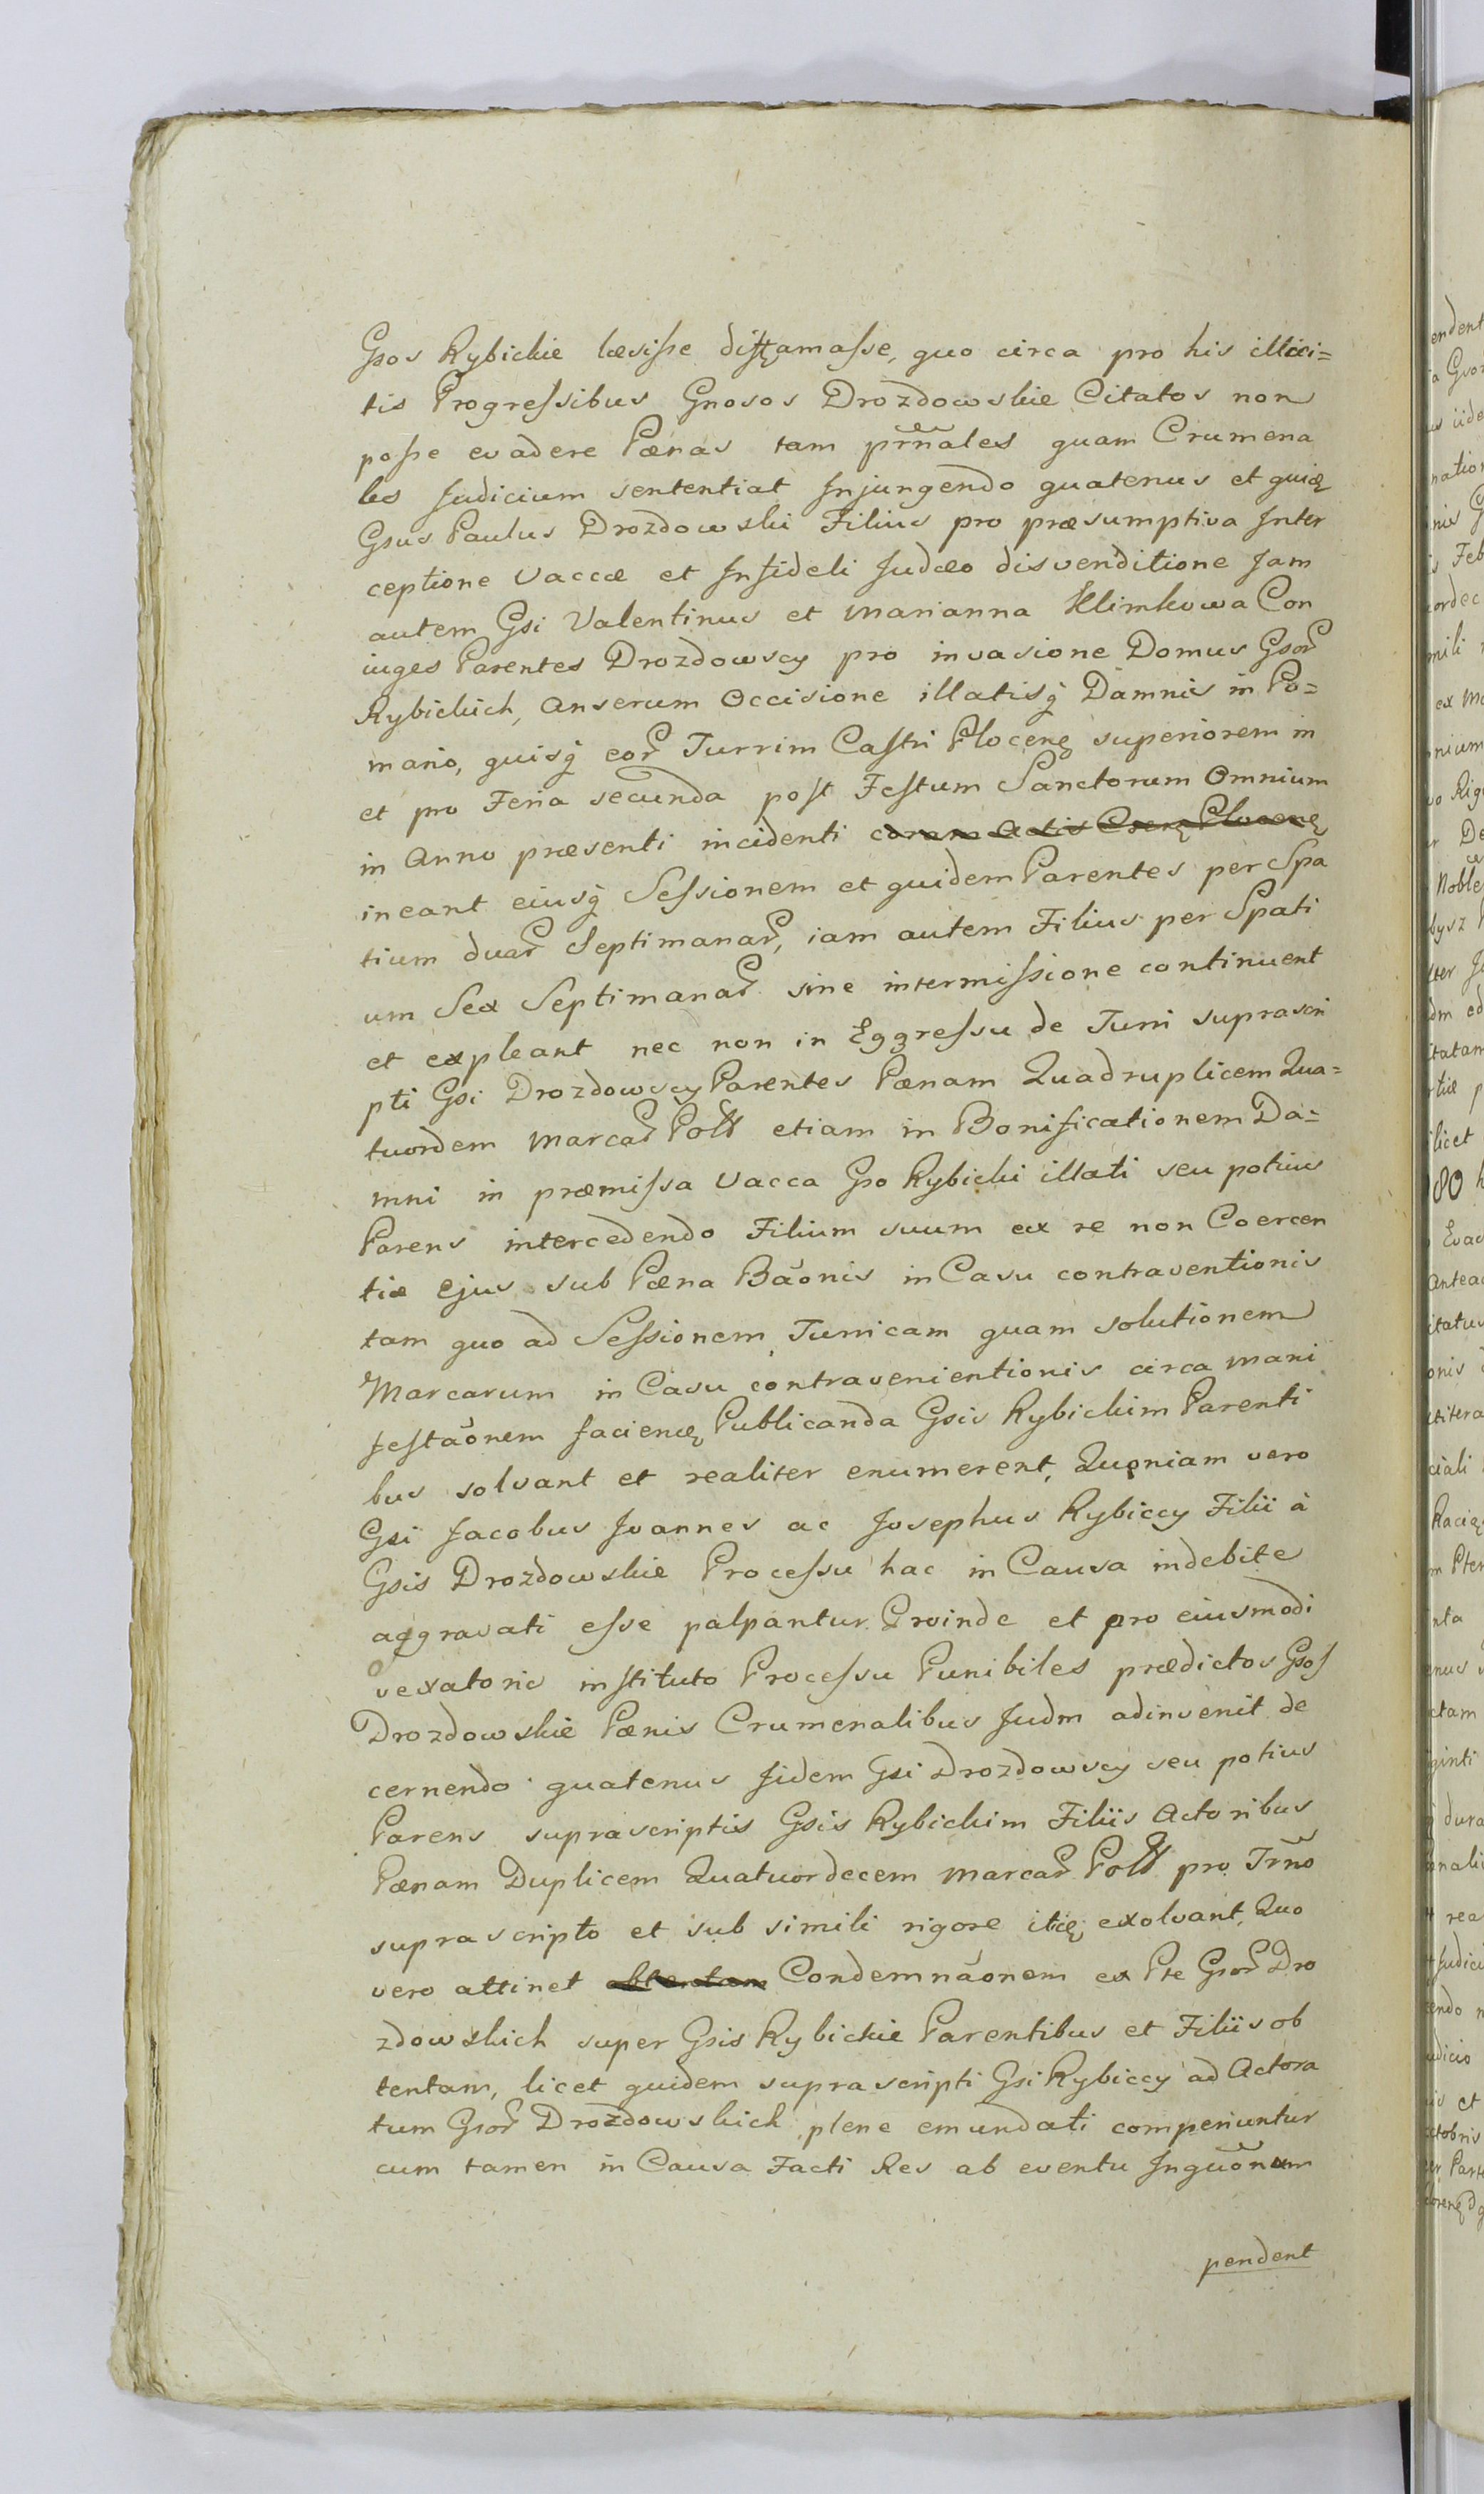 Gsos Rybickie læsisse diffamasse, quo circa pro his illici=
tis Progressibus Gnosos Drozdowskie Citatos non
posse evadere Pænas tam prnales quam Crumena
les Judicium sententiat Injungendo quatenus et quidę
Gsus Paulus Drozdowski Filius pro præsumptiva Inter
ceptione Vaccæ et Infideli Judæo disvenditione Jam
autem Gsi Valentinus et Marianna Klimkowa Con
iuges Parentes Drozdowscy pro invasione Domus Gsor
Rybickich, Anserum Occisione illatisq Damnis in Po=
mario, quisq eor Turrim Castri Plocenę superiorem in
et pro Feria secunda post Festum Sanctorum Omnium
in Anno præsenti incidenti coram Actis Csenę Plocenę
ineant eiusq Sessionem et quidem Parentes per Spa
tium duar Septimanar, iam autem Filius per Spati
um Sex Septimanar sine intermissione continuent
et expleant nec non in Eggressu de Turri suprascri
pti Gsi Drozdowscy Parentes Pænam Quadruplicem Qua=
tuordem Marcar Poll etiam in Bonificationem Da=
mni in præmissa Vacca Gso Rybicki illati seu potius
Parens intercedendo Filium suum ex re non Coercen
tiæ Ejus sub Pæna Bãonis in Casu contraventionis
tam quo ad Sessionem Turricam quam solutionem
Marcarum in Casu contravenientionis circa mani
festãonem facienę Publicanda Gsis Rybickim Parenti
bus solvant et realiter enumerent, Quoniam vero
Gsi Jacobus Joannes ac Josephus Rybiccy Filii à
Gsis Drozdowskie Processu hac in Causa indebite
aggravati esse palpantur. Proinde et pro eiusmodi
vexatorie instituto Processu Punibiles prædictos Gsos
Drozdowskie Pænis Crumenalibus Judm adinvenit de
cernendo quatenus Jidem Gsi Drozdowscy seu potius
Parens suprascriptis Gsis Rybickim Filiis Actoribus
Pænam Duplicem Quatuordecem Marcar Poll pro Trno
suprascripto et sub simili rigore itię exolvant, Quo
vero attinet obtentam Condemnãonem ex Pte Gsor Dro
zdowskich super Gsis Rybickie Parentibus et Filiis ob
tentam, licet quidem suprascripti Gsi Rybiccy ad Actora
tum Gsor Drozdowskich plene emundati comperiuntur
cum tamen in Causa Facti Res ab eventu Inquõnum
pendent